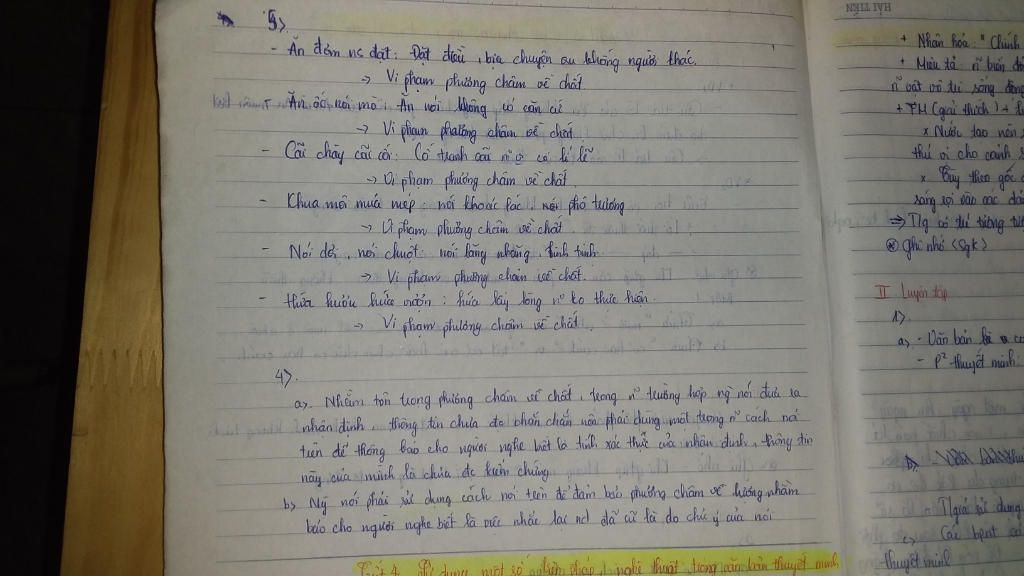 5>
- Ăn đơm ns đặt: Đặt điều, bịa chuyện cu khống người khác.
→ Vi phạm phương châm về chất
- Ăn ốc nói mò: Ăn nói không có căn cứ
→ Vi phạm phương châm về chất
- Cãi chày cãi cối: Cố tranh cãi n~ o có lí lẽ
→ Vi phạm phương châm về chất
- Khua môi múa mép: nói khoác lác phô trương
→ Vi phạm phương châm về chất
- Nói dơi, nói chuột: nói lăng nhăng, linh tinh
→ Vi phạm phương châm về chất.
- Hứa hươu hứa vượn: hứa lấy lòng n~ ko thực hiện.
→ Vi phạm phương châm về chất.
4>.
a>. Nhằm tôn trọng phương châm về chất, trong n~ trường hợp ng nói đưa ra
nhận định, thông tin chưa đc chắn nên phải dùng một trong n~ cách nói
trên để thông báo cho người nghe biết là tính xác thực của nhận định, thông tin
này của mình là chưa đc kiểm chứng.
b> Ng nói phải sử dụng cách nói trên để đảm bảo phương châm về lượng nhằm
báo cho người nghe biết là việc nhắc lại nd đã cũ là do chú ý của nói
Tiết 4. Sử dụng một số biện pháp nghệ thuật trong văn bản thuyết minh
HẢI TIẾN
+ Nhân hóa: "Chính
+ Miêu tả n~ biến đổi
n~ vật vô tri sống động
+ TM (giải thích) +
x Nước tạo nên s
thú vị cho cảnh s
x Tùy theo góc
sáng rọi vào các đảo
⇒ T/g có trí tưởng tượ
* Ghi nhớ (sgk)
II Luyện tập
1>
a> - Văn bản là
- P² thuyết minh:
b> -
T/giả sử dụng
c> Các bpnt có
thuyết minh